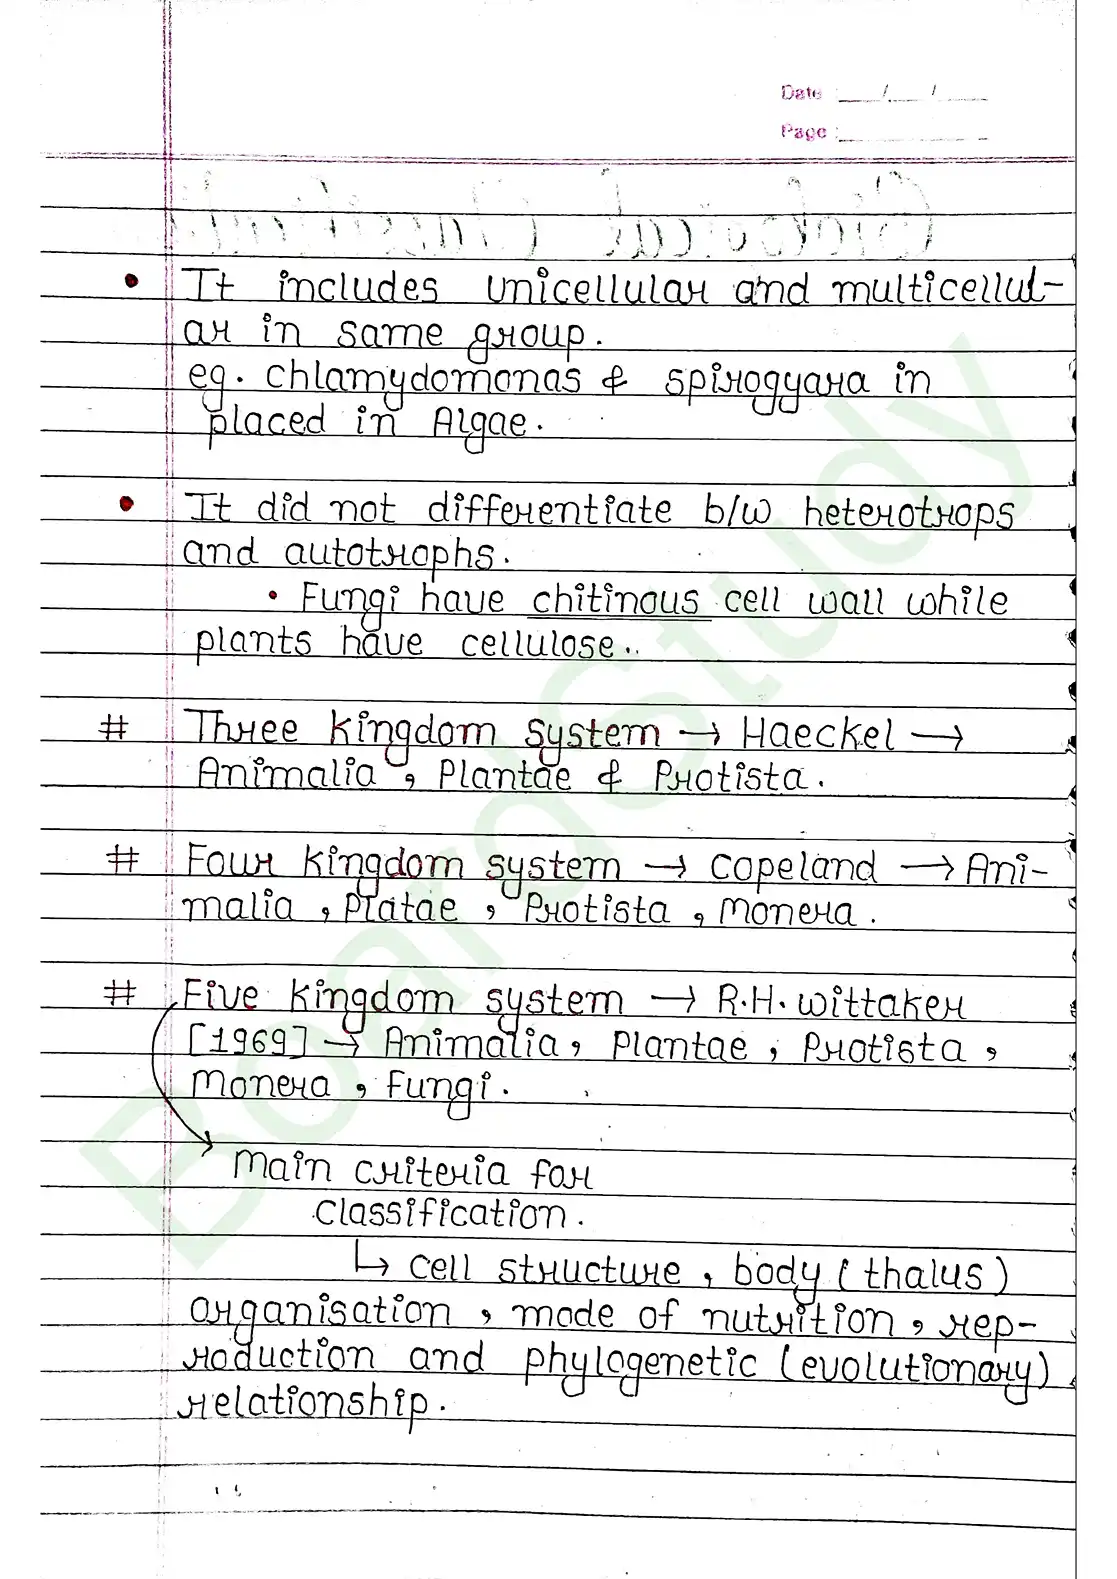 Date : / /
Page :
• It includes unicellular and multicellul-
ar in same group.
eg. Chlamydomonas & Spirogyara in
placed in Algae.
• It did not differentiate b/w heterotrops
and autotrophs.
• Fungi have chitinous cell wall while
plants have cellulose..
# Three kingdom system → Haeckel →
Animalia, Plantae & Protista.
# Four kingdom system → Copeland → Ani-
malia, Platae, Protista, Monera.
# Five kingdom system → R.H. Wittaker
[1969] → Animalia, Plantae, Protista,
Monera, Fungi.
Main criteria for
Classification.
↳ Cell structure, body (thalus)
organisation, mode of nutrition, rep-
roduction and phylogenetic (evolutionary)
relationship.
BoardStudy